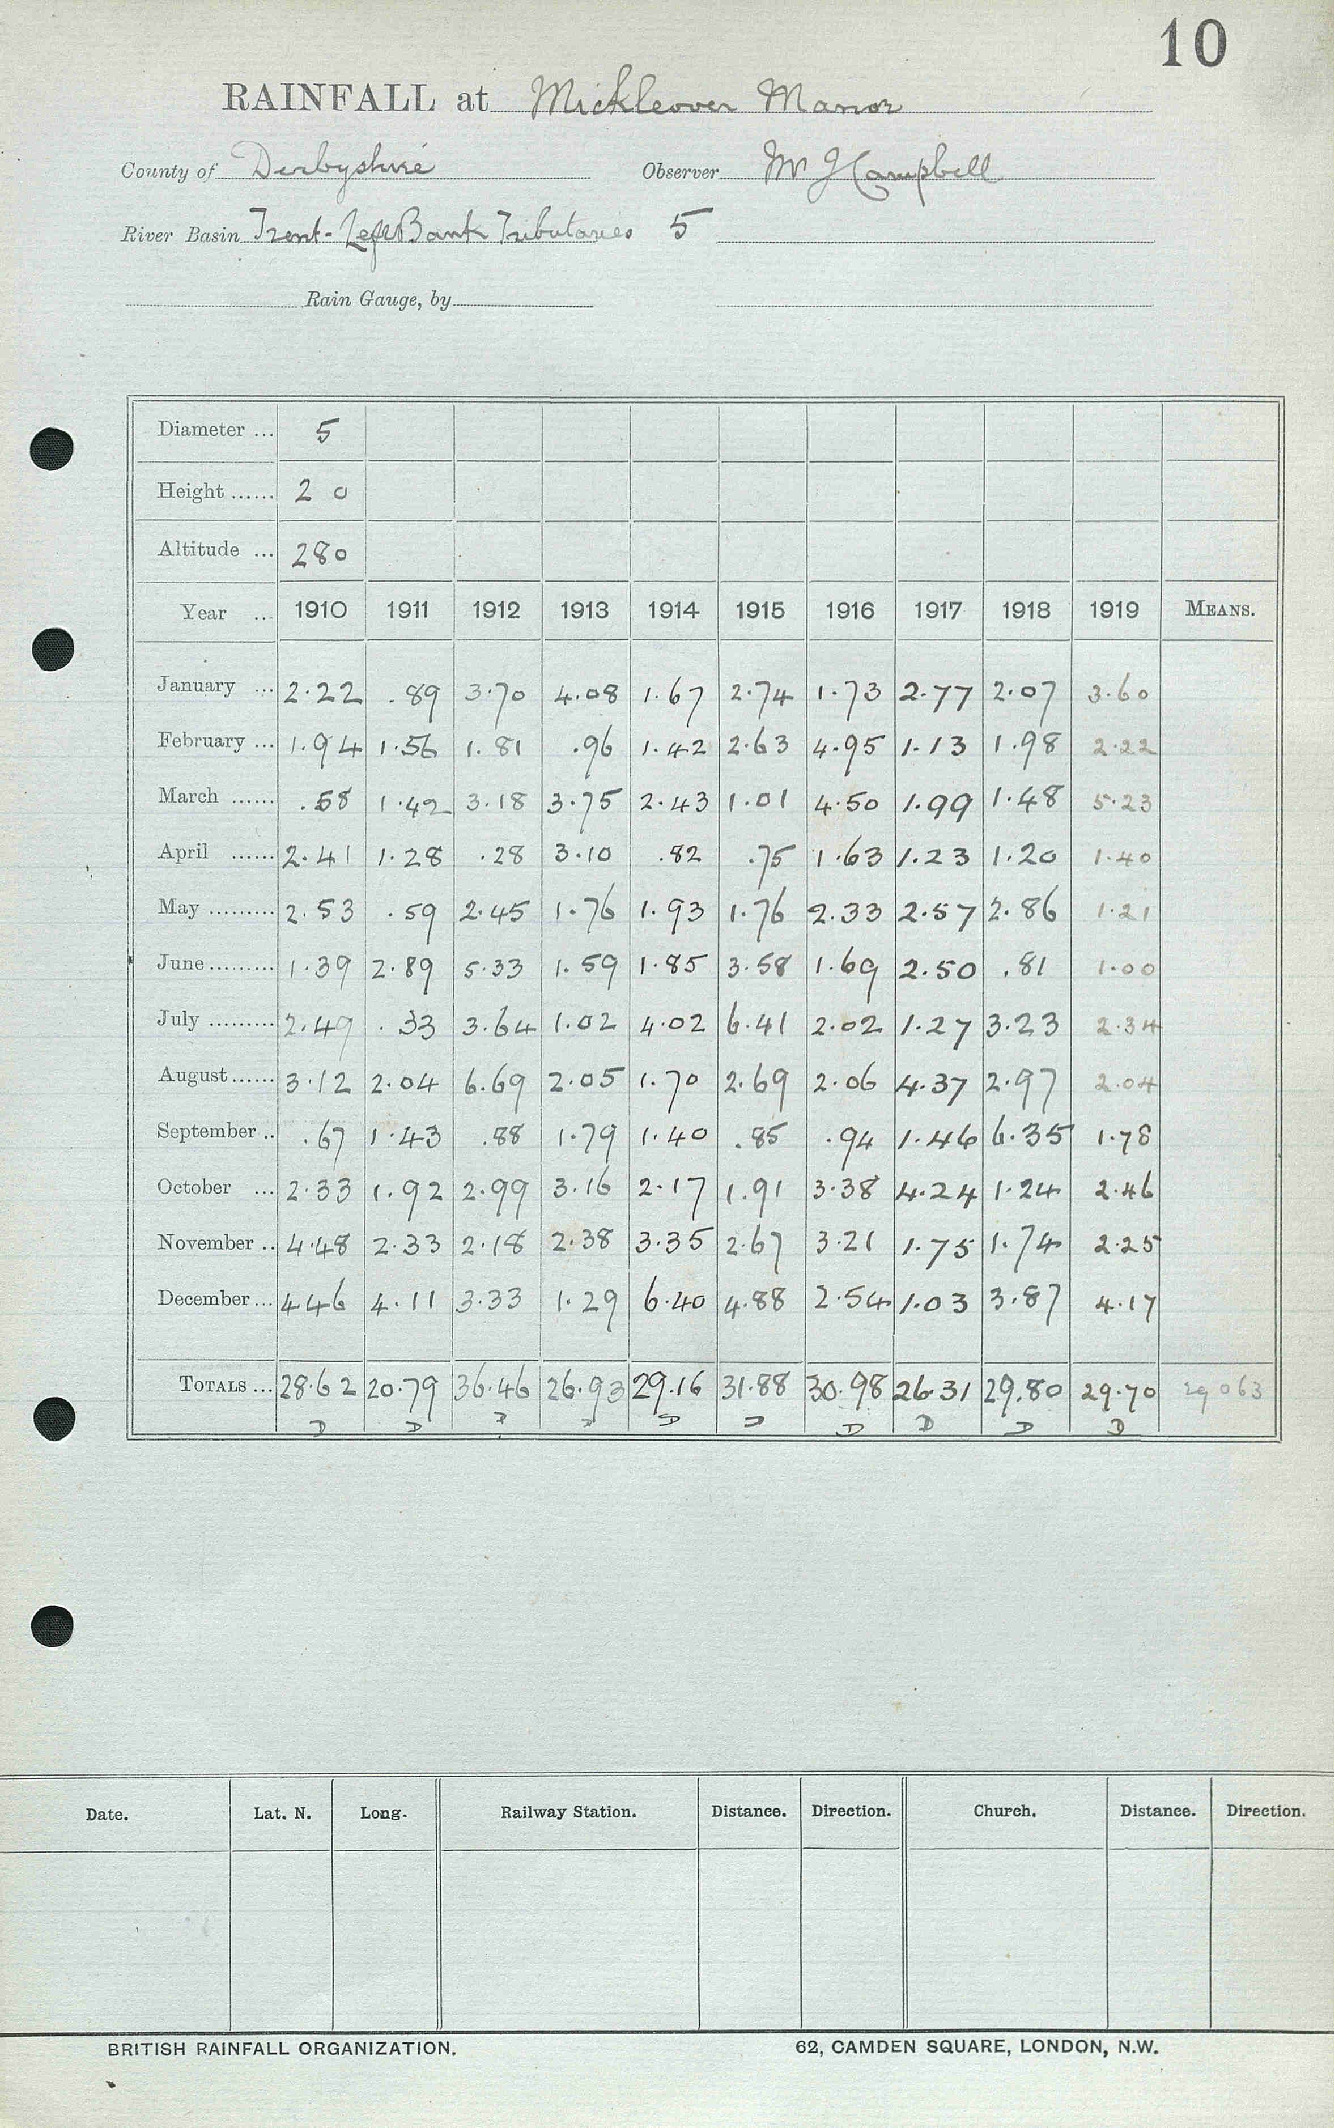 10
RAINFALL at Mickleover Manor
County of Derbyshire Observer Mr J Campbell
River Basin Trent - Left Bank Tributaries 5
Rain Gauge, by
Diameter ... 5
Height ...... 2 0
Altitude ... 280
Year ... 1910 1911 1912 1913 1914 1915 1916 1917 1918 1919 MEANS.
January ... 2.22 .89 3.70 4.08 1.67 2.74 1.73 2.77 2.07 3.60
February ... 1.94 1.56 1.81 .96 1.42 2.63 4.95 1.13 1.98 2.22
March ...... .58 1.42 3.18 3.75 2.43 1.01 4.50 1.99 1.48 5.23
April ...... 2.41 1.28 .28 3.10 .82 .75 1.63 1.23 1.20 1.40
May ......... 2.53 .59 2.45 1.76 1.93 1.76 2.33 2.57 2.86 1.21
June ......... 1.39 2.89 5.33 1.59 1.85 3.58 1.69 2.50 .81 1.00
July ......... 2.49 .33 3.64 1.02 4.02 6.41 2.02 1.27 3.23 2.34
August ...... 3.12 2.04 6.69 2.05 1.70 2.69 2.06 4.37 2.97 2.04
September .. .67 1.43 .88 1.79 1.40 .85 .94 1.46 6.35 1.78
October ... 2.33 1.92 2.99 3.16 2.17 1.91 3.38 4.24 1.24 2.46
November .. 4.48 2.33 2.18 2.38 3.35 2.67 3.21 1.75 1.74 2.25
December ... 4.46 4.11 3.33 1.29 6.40 4.88 2.54 1.03 3.87 4.17
TOTALS ... 28.62 20.79 36.46 26.93 29.16 31.88 30.98 26.31 29.80 29.70 29 063
D D D D D D D D D D
Date. Lat. N. Long. Railway Station. Distance. Direction. Church. Distance. Direction.
BRITISH RAINFALL ORGANIZATION. 62, CAMDEN SQUARE, LONDON, N.W.